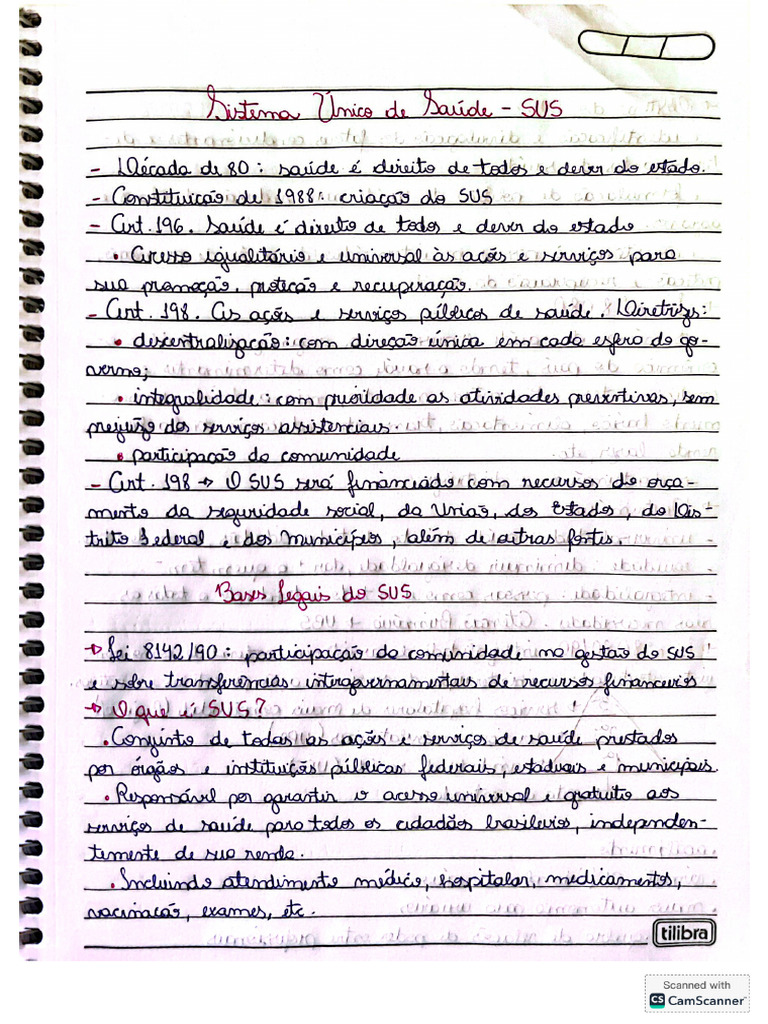 Sistema Único de Saúde - SUS
- Década de 80: saúde é direito de todos e dever do estado.
- Constituição de 1988: criação do SUS
- Art. 196. Saúde é direito de todos e dever do estado
• Acesso igualitário e universal às ações e serviços para
sua promoção, proteção e recuperação.
- Art. 198. As ações e serviços públicos de saúde. Diretrizes:
• descentralização: com direção única em cada esfera do go-
verno;
• integralidade: com prioridade as atividades preventivas, sem
prejuízo dos serviços assistenciais.
• participação da comunidade
- Art. 198 → O SUS será financiado com recursos do orça-
mento da seguridade social, da União, dos Estados, do Dis-
trito Federal e dos Municípios, além de outras fontes.
Bases Legais do SUS
→ Lei 8142/90: participação da comunidade na gestão do SUS
e sobre transferências intergovernamentais de recursos financeiros
→ O que é SUS?
• Conjunto de todas as ações e serviços de saúde prestados
por órgãos e instituições públicas federais, estaduais e municipais.
• Responsável por garantir o acesso universal e gratuito aos
serviços de saúde para todos os cidadãos brasileiros, independen-
temente de sua renda.
• Incluindo atendimento médico, hospitalar, medicamentos,
vacinação, exames, etc.
tilibra
Scanned with
CS CamScanner